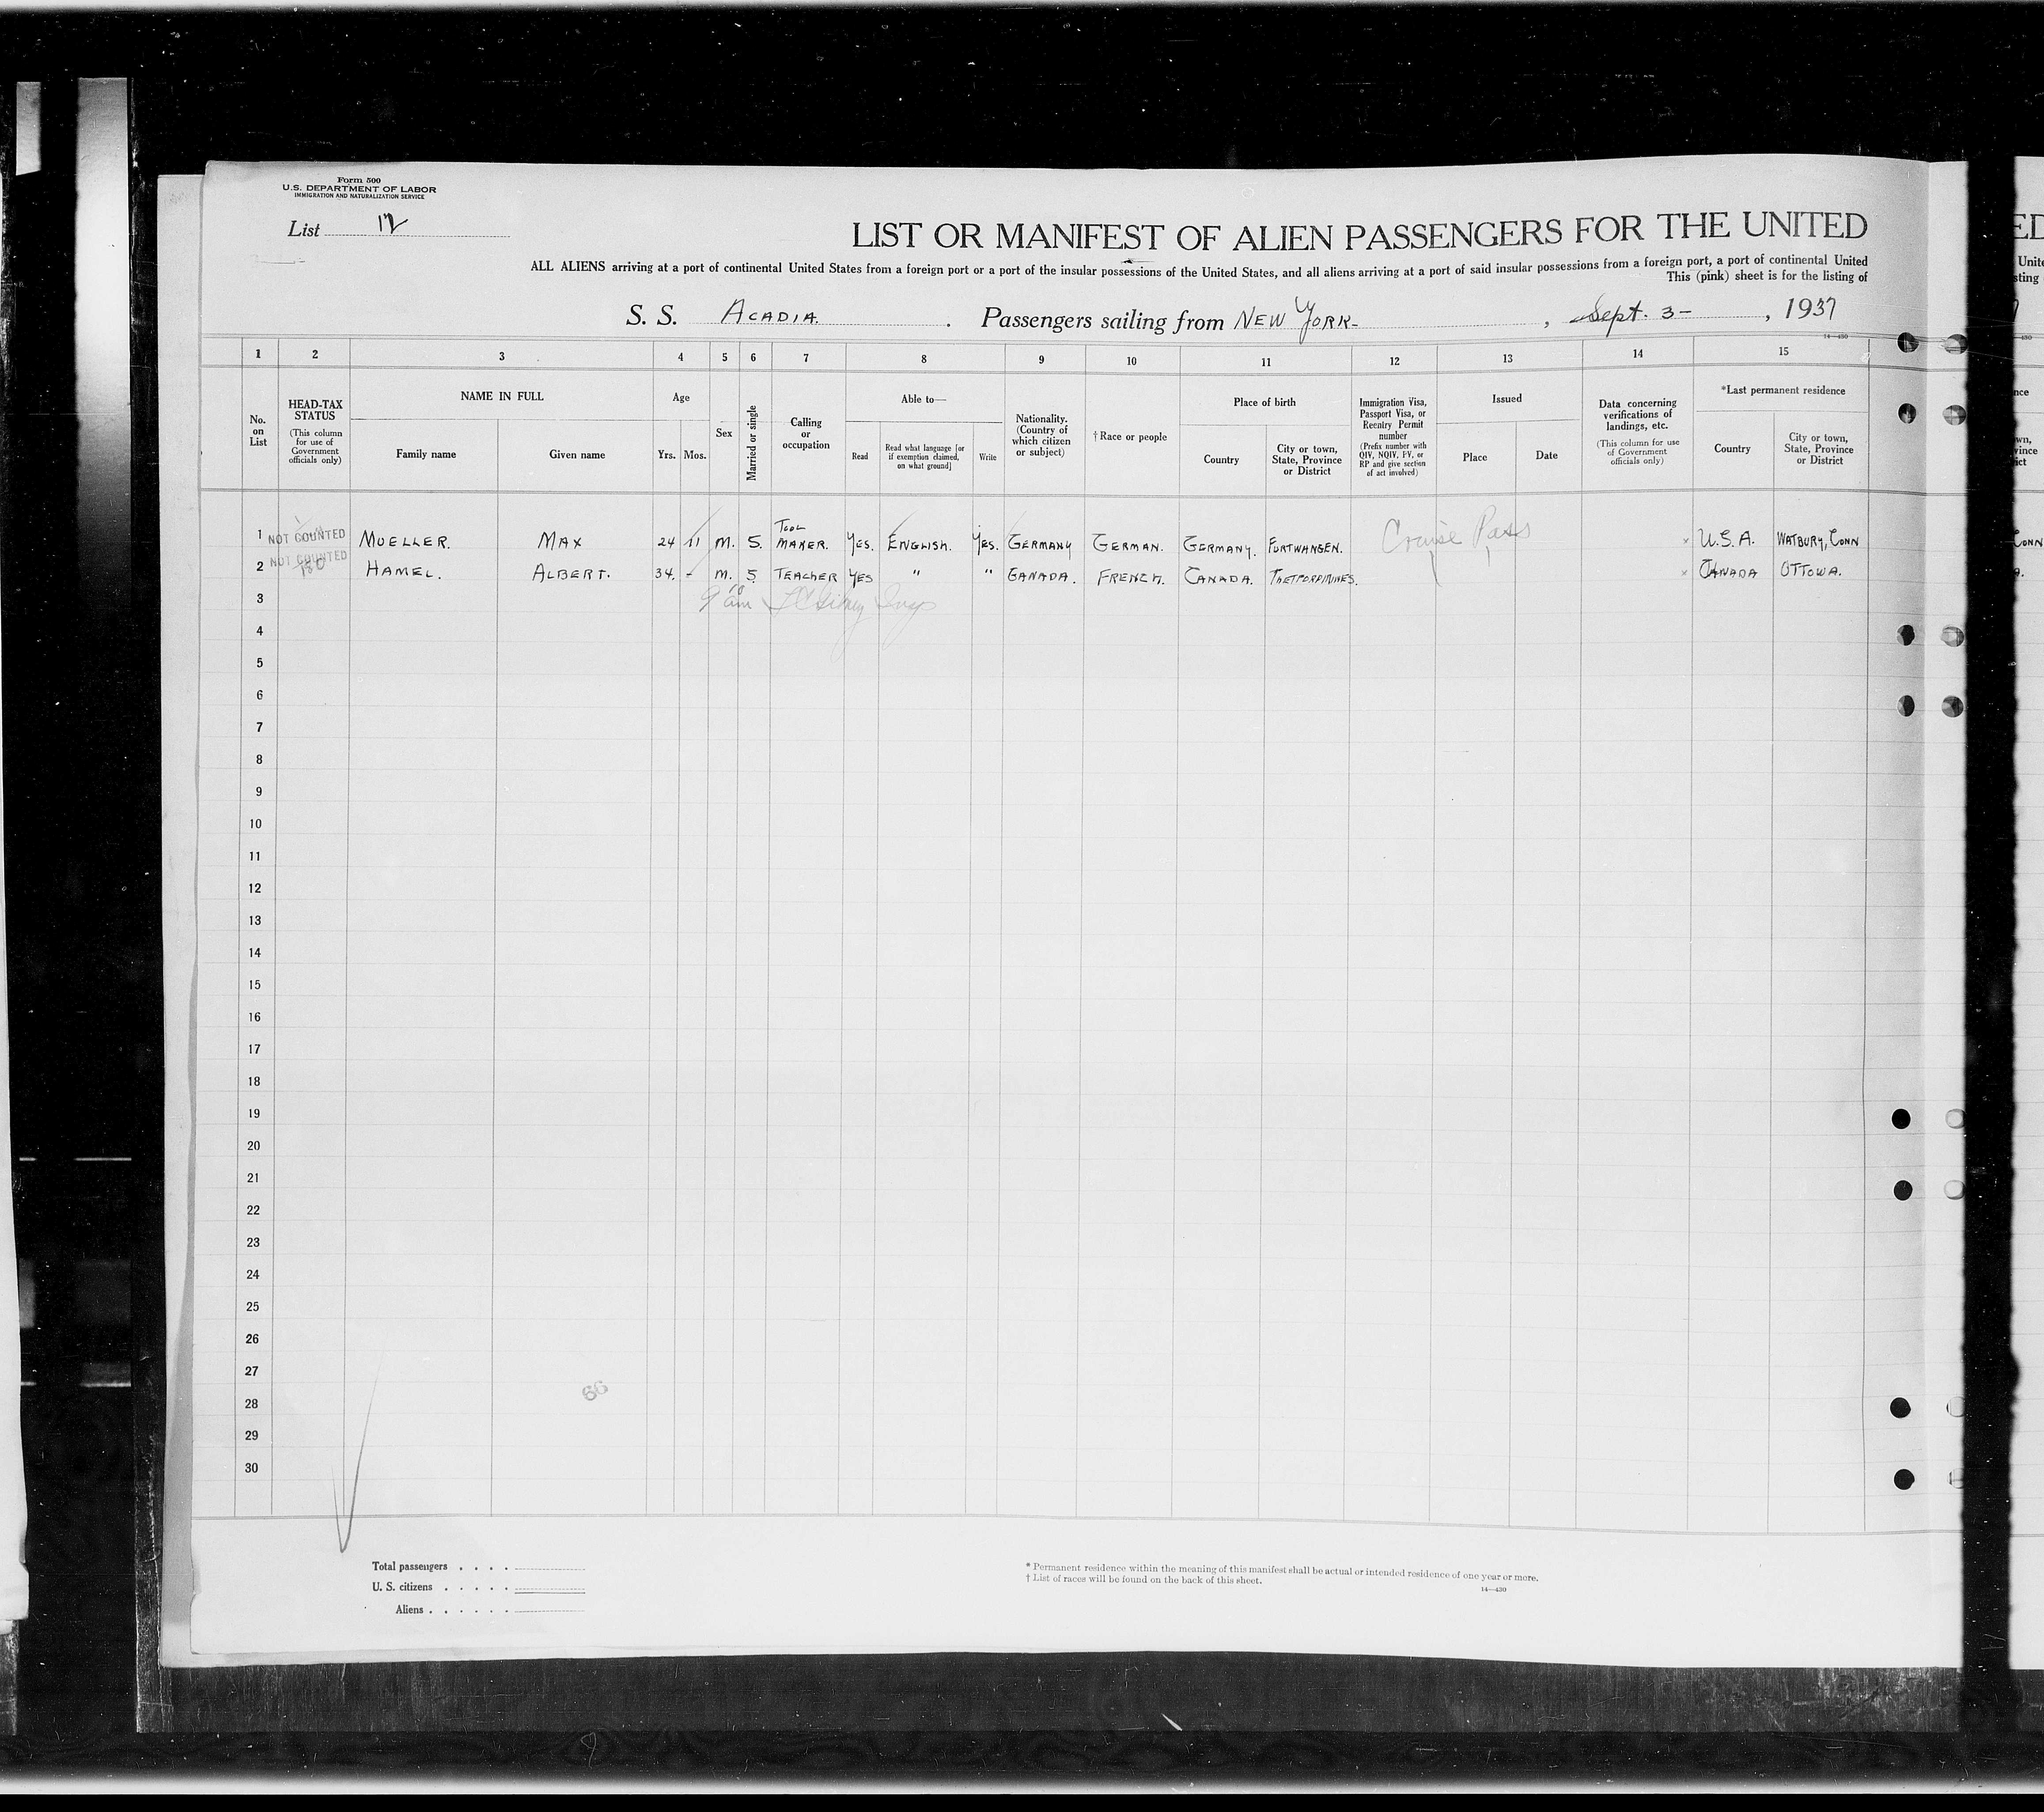 Form 500
U.S. DEPARTMENT OF LABOR
IMMIGRATION AND NATURALIZATION SERVICE
List 12
LIST OR MANIFEST OF ALIEN PASSENGERS FOR THE UNITED
ALL ALIENS arriving at a port of continental United States from a foreign port or a port of the insular possessions of the United States, and all aliens arriving at a port of said insular possessions from a foreign port, a port of continental United
This (pink) sheet is for the listing of
S. S. ACADIA. Passengers sailing from NEW YORK- , Sept. 3- , 1937
14—430
1 2 3 4 5 6 7 8 9 10 11 12 13 14 15
No. on List
HEAD-TAX STATUS
(This column for use of Government officials only)
NAME IN FULL
Family name
Given name
Age
Yrs. Mos.
Sex
Married or single
Calling or occupation
Able to—
Read
Read what language [or if exemption claimed, on what ground]
Write
Nationality. (Country of which citizen or subject)
† Race or people
Place of birth
Country
City or town, State, Province or District
Immigration Visa, Passport Visa, or Reentry Permit number
(Prefix number with QIV, NQIV, PV, or RP and give section of act involved)
Issued
Place
Date
Data concerning verifications of landings, etc.
(This column for use of Government officials only)
*Last permanent residence
Country
City or town, State, Province or District
1 NOT COUNTED MUELLER. MAX 24 11 M. S. TOOL MAKER. YES. ENGLISH. YES. GERMANY GERMAN. GERMANY. FURTWANGEN. Cruise Pass x U.S.A. WATBURY, CONN
2 NOT COUNTED HAMEL. ALBERT. 34. - M. S TEACHER YES " " CANADA. FRENCH. CANADA. THETFORDMINES. x CANADA OTTOWA.
3 9 am
4
5
6
7
8
9
10
11
12
13
14
15
16
17
18
19
20
21
22
23
24
25
26
27
66
28
29
30
Total passengers . . . .
U. S. citizens . . . . .
Aliens . . . . . .
* Permanent residence within the meaning of this manifest shall be actual or intended residence of one year or more.
† List of races will be found on the back of this sheet.
14—430